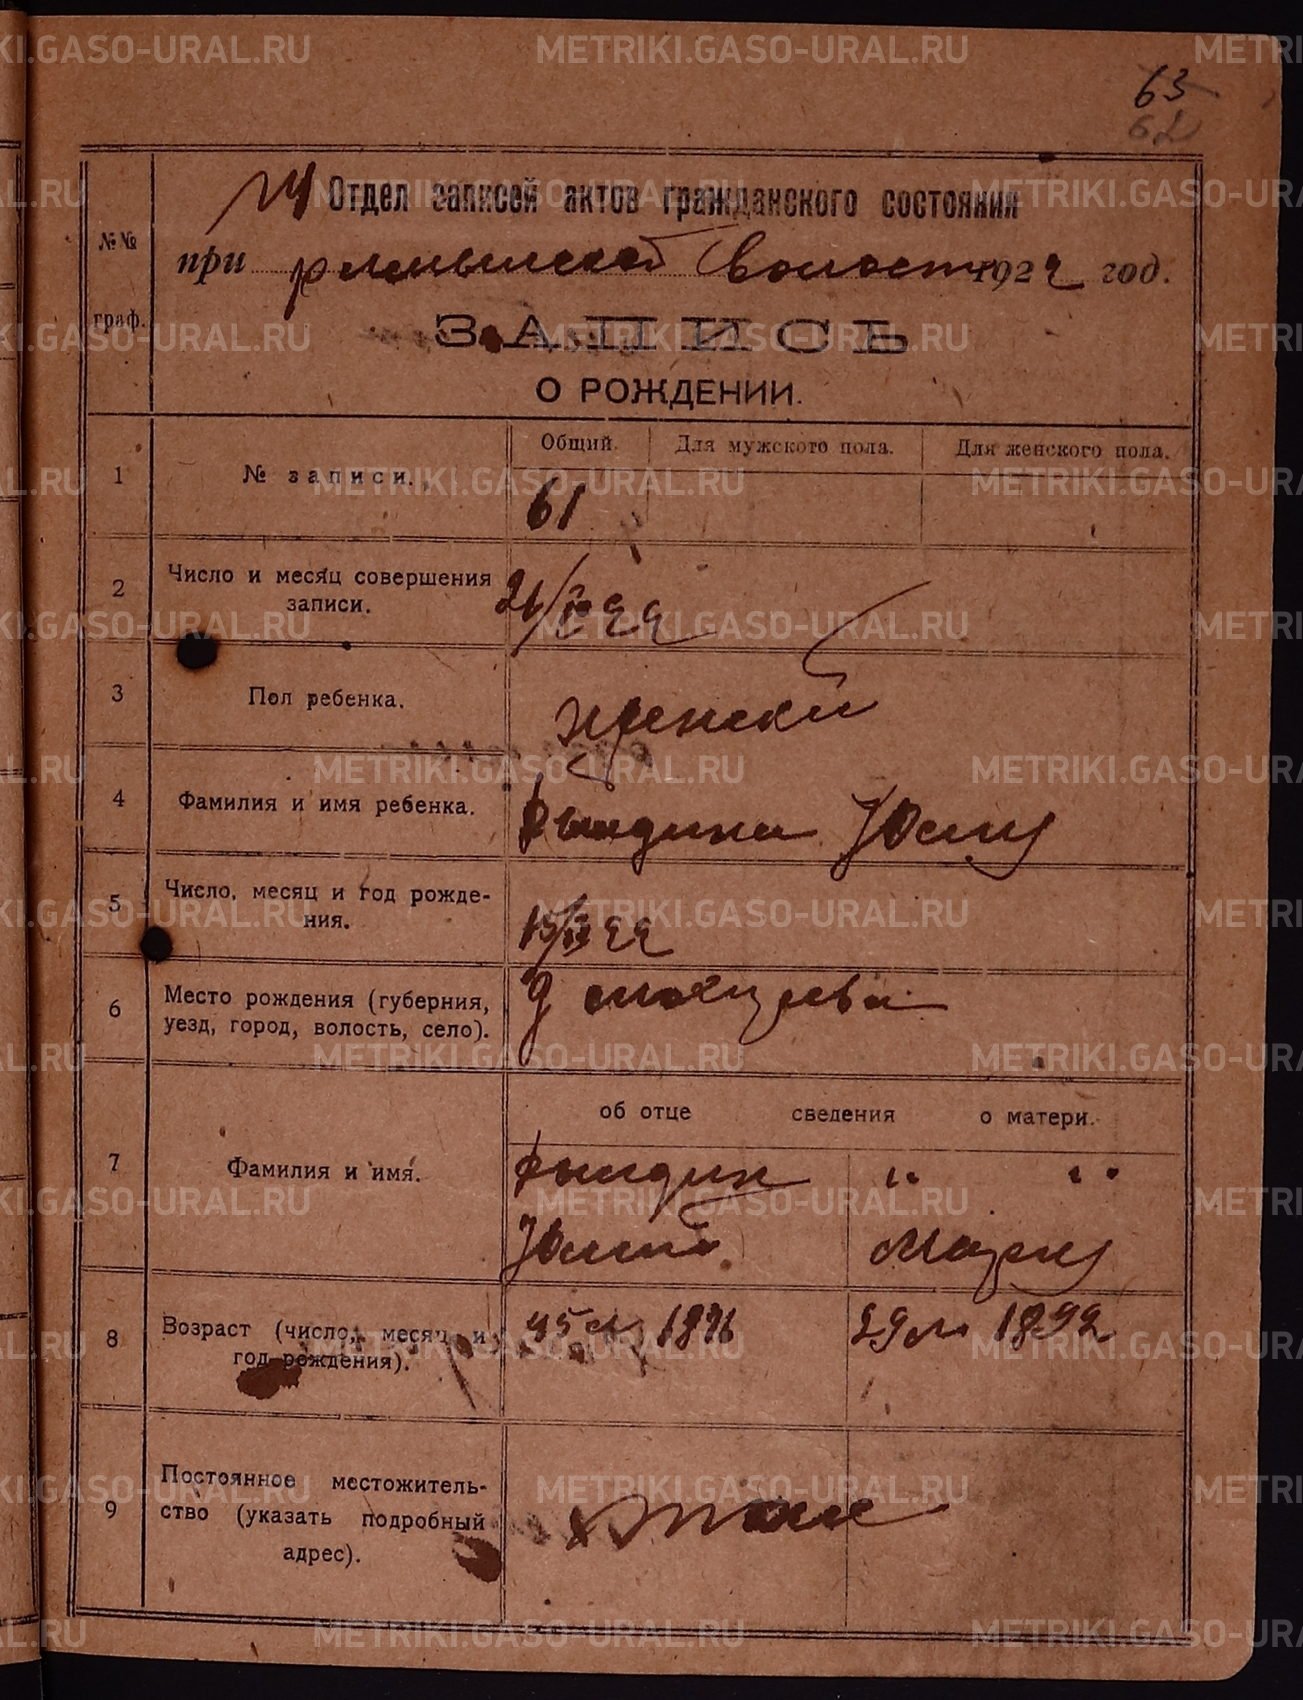 63
62
Отдел записей актов гражданского состояния
при волости 1922 год.
№№ граф.
ЗАПИСЬ
О РОЖДЕНИИ.
1 № записи. Общий. Для мужского пола. Для женского пола.
61
2 Число и месяц совершения записи.
3 Пол ребенка. женски
4 Фамилия и имя ребенка.
5 Число, месяц и год рождения. 22
6 Место рождения (губерния, уезд, город, волость, село). д
об отце сведения о матери.
7 Фамилия и имя. " "
Мария
8 Возраст (число, месяц и год рождения). 45 л 1876 29 л 1892
9 Постоянное местожительство (указать подробный адрес).
METRIKI.GASO-URAL.RU